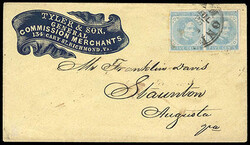 TYLER & SON,
GENERAL
COMMISSION MERCHANTS,
134 CARY ST. RICHMOND, VA.
Mr Franklin Davis
Staunton
Augusta
Va